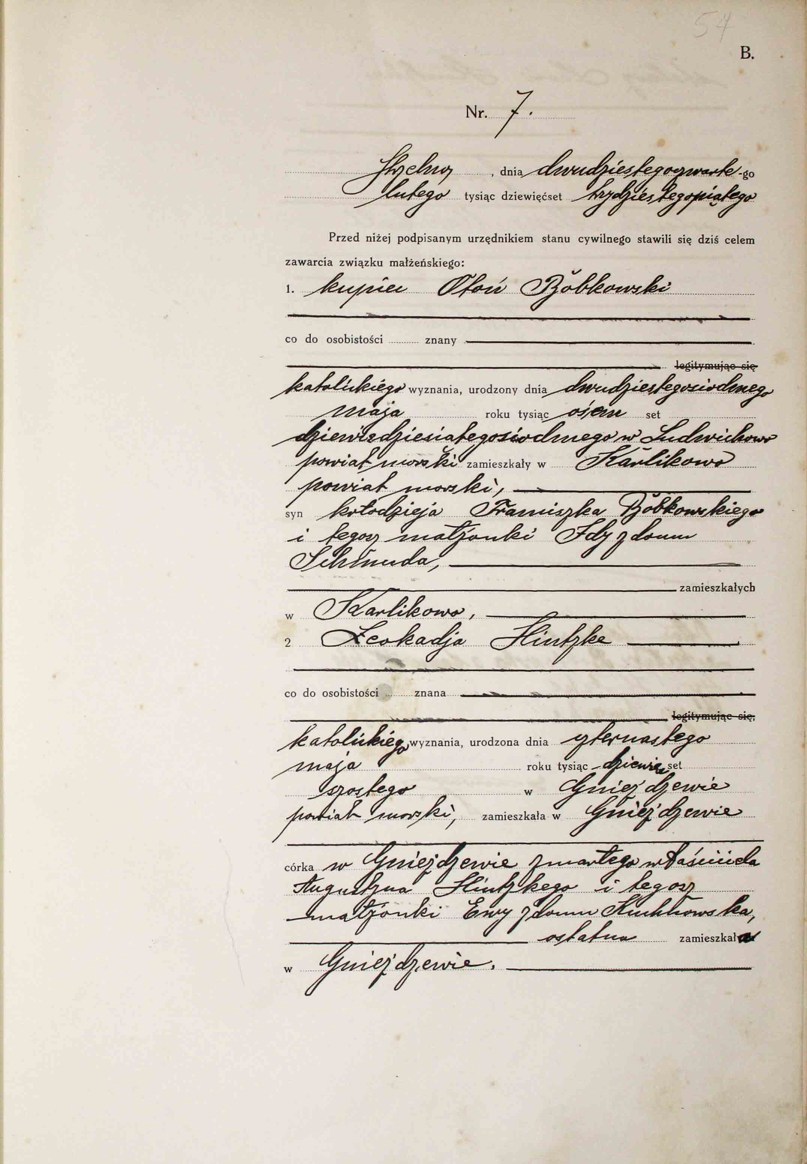 54
B.
Nr. 7.
Strzelno, dnia dwudziestegoczwarte-go
lutego tysiąc dziewięćset trzydziestegopiątego
Przed niżej podpisanym urzędnikiem stanu cywilnego stawili się dziś celem
zawarcia związku małżeńskiego:
1. kupiec Otoń Böbkowski
co do osobistości znany
legitymując się
katolickiego wyznania, urodzony dnia dwudziestegosiódmego
maja roku tysiąc ośem set
dziewiędziesiątegosiódmego w Ludwichowo
powiat morski zamieszkały w Karlikowo
powiat morski,
syn kołodzieja Franciszka Böbkowskiego
i tegoż małżonki Idy z domu
zamieszkałych
w Karlikowo,
2 Leokadja Hintzke
co do osobistości znana
legitymując się,
katolickiego wyznania, urodzona dnia czternastego
maja roku tysiąc dziewięć set
szóstego w Gnieżdżewie
powiat morski, zamieszkała w Gnieżdżewie
córka w Gnieżdżewie zmarłego właściciela
Augustyna Hintzkego i tegoż
małżonki Ewy z domu
ostatnia zamieszkała
w Gnieżdżewie.